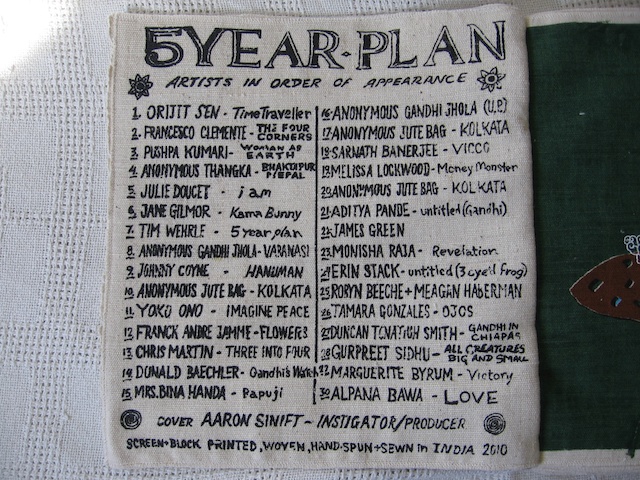 5 YEAR·PLAN
ARTISTS IN ORDER OF APPEARANCE
1. ORIJIT SEN - Time Traveller
2. FRANCESCO CLEMENTE - THE FOUR CORNERS
3. PUSHPA KUMARI - WOMAN AS EARTH
4. ANONYMOUS THANGKA - BHAKTAPUR NEPAL
5. JULIE DOUCET - i am
6. JANE GILMOR - Kama Bunny
7. TIM WEHRLE - 5 year plan
8. ANONYMOUS GANDHI JHOLA - VARANASI
9. JOHNNY COYNE - HANUMAN
10. ANONYMOUS JUTE BAG - KOLKATA
11. YOKO ONO - IMAGINE PEACE
12. FRANCK ANDRE JAMME - FLOWERS
13. CHRIS MARTIN - THREE INTO FOUR
14. DONALD BAECHLER - Gandhi's Watch
15. MRS. BINA HANDA - Papuji
16. ANONYMOUS GANDHI JHOLA (U.P.)
17. ANONYMOUS JUTE BAG - KOLKATA
18. SARNATH BANERJEE - VICCO
19. MELISSA LOCKWOOD - Money Monster
20. ANONYMOUS JUTE BAG - KOLKATA
21. ADITYA PANDE - untitled (Gandhi)
22. JAMES GREEN
23. MONISHA RAJA - Revelation
24. ERIN STACK - untitled (3 eyed frog)
25. ROBYN BEECHE + MEAGAN HABERMAN
26. TAMARA GONZALES - OJOS
27. DUNCAN TONATIUH SMITH - GANDHI IN CHIAPAS
28. GURPREET SIDHU - ALL CREATURES BIG AND SMALL
29. MARGUERITE BYRUM - Victory
30. ALPANA BAWA - LOVE
COVER AARON SINIFT - INSTIGATOR/PRODUCER
SCREEN + BLOCK PRINTED, WOVEN, HAND-SPUN + SEWN in INDIA 2010